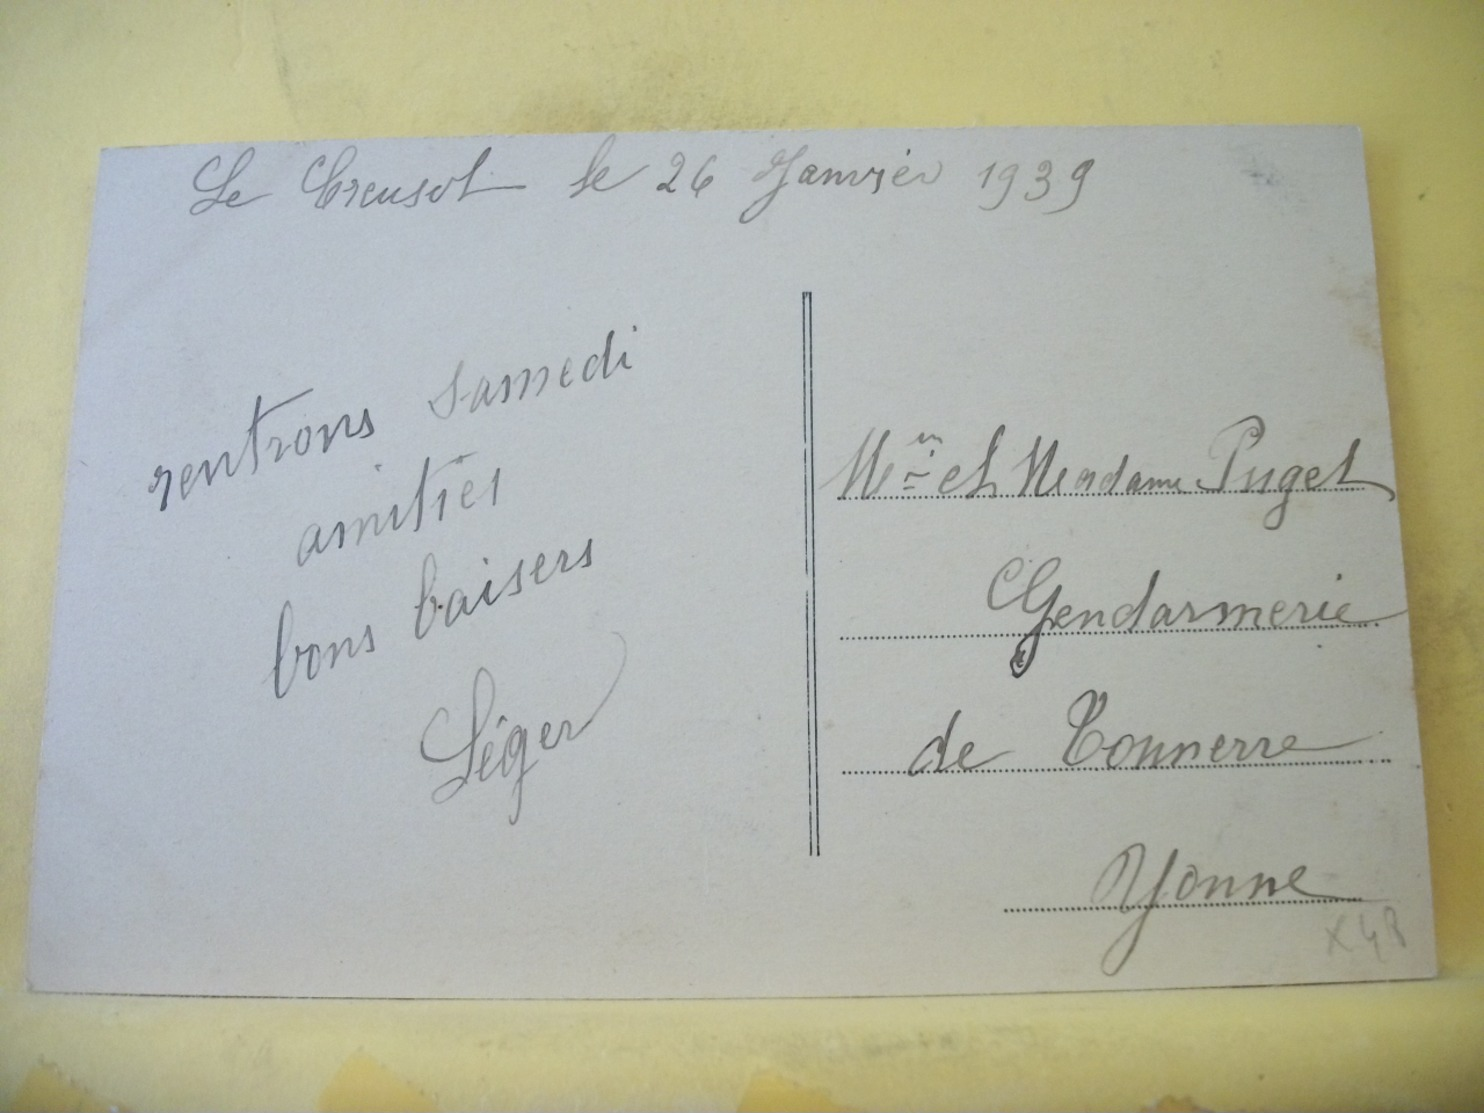 Le Creusot le 26 Janvier 1939
rentrons samedi
amitiés
bons baisers
Léger
et Madame Puget
Gendarmerie
de Tonnerre
Yonne